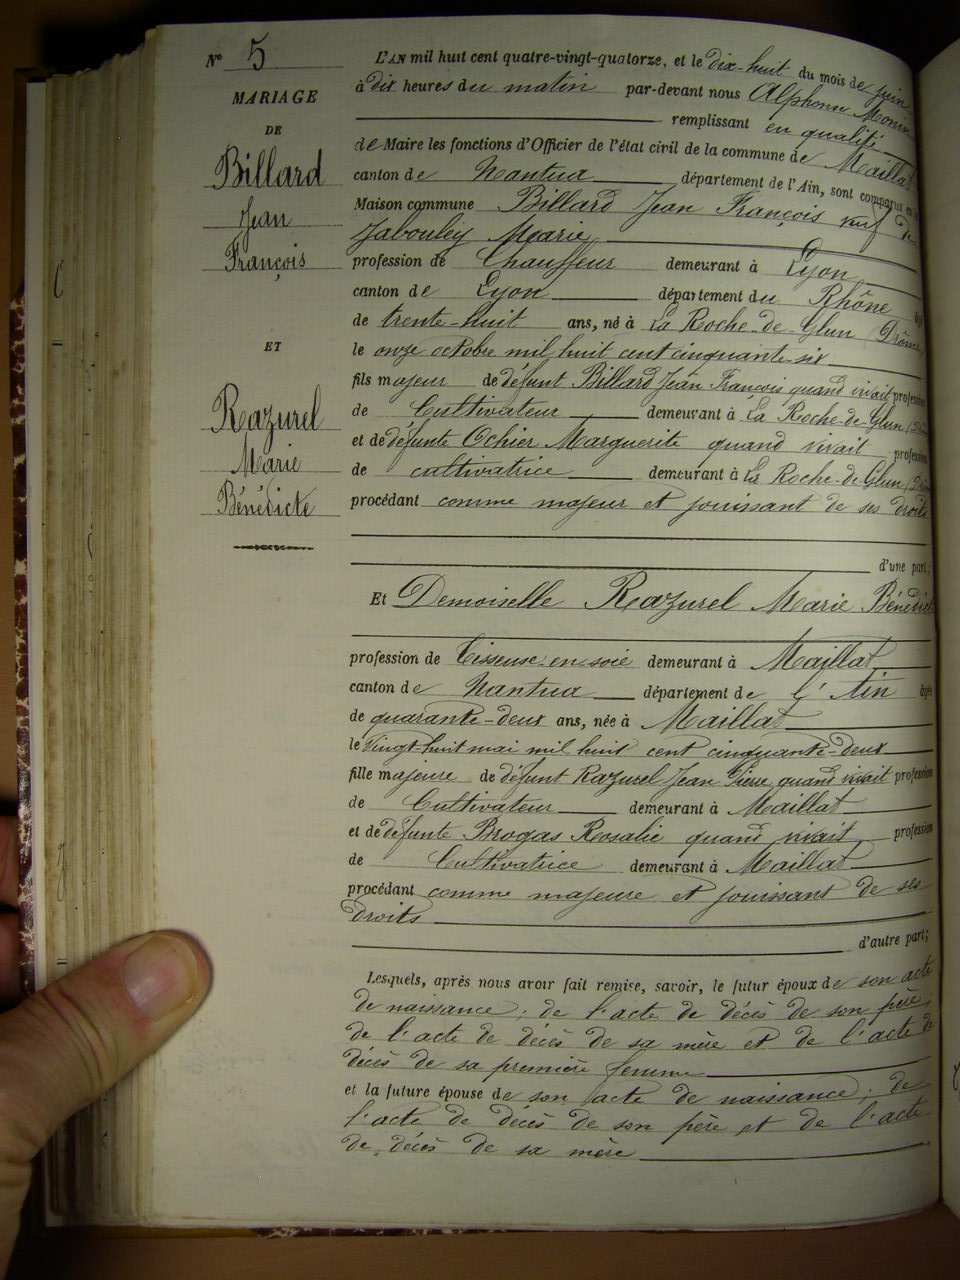 N° 5
MARIAGE
DE
Billard
Jean
François
ET
Razurel
Marie
Bénédicte
L'AN mil huit cent quatre-vingt-quatorze, et le dix-huit du mois de juin
à dix heures du matin par-devant nous Alphonse Monin
remplissant en qualité
de Maire les fonctions d'Officier de l'état civil de la commune de Maillat
canton de Nantua département de l'Ain, sont comparus en la
Maison commune Billard Jean François veuf de
Jabouley Marie
profession de Chauffeur demeurant à Lyon
canton de Lyon département du Rhône âgé
de trente-huit ans, né à La Roche-de-Glun (Drôme)
le onze octobre mil huit cent cinquante-six
fils majeur de défunt Billard Jean François quand vivait profession
de Cultivateur demeurant à La Roche-de-Glun
et de défunte Ochier Marguerite quand vivait profession
de cultivatrice demeurant à La Roche-de-Glun
procédant comme majeur et jouissant de ses droits
d'une part;
Et Demoiselle Razurel Marie Bénédicte
profession de Tisseuse en soie demeurant à Maillat
canton de Nantua département de l'Ain âgée
de quarante-deux ans, née à Maillat
le vingt-huit mai mil huit cent cinquante-deux
fille majeure de défunt Razurel Jean Pierre quand vivait profession
de Cultivateur demeurant à Maillat
et de défunte Brogas Rosalie quand vivait profession
de Cultivatrice demeurant à Maillat
procédant comme majeure et jouissant de ses
droits
d'autre part;
Lesquels, après nous avoir fait remise, savoir, le futur époux de son acte
de naissance; de l'acte de décès de son père;
de l'acte de décès de sa mère et de l'acte de
décès de sa première femme
et la future épouse de son acte de naissance; de
l'acte de décès de son père et de l'acte
de décès de sa mère